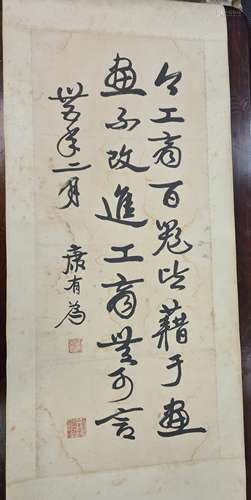 今工商百器皆藉于畫
畫不改進工商无可言
癸亥年二月
康有為